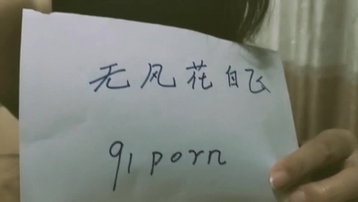 无风花自飞
91 porn